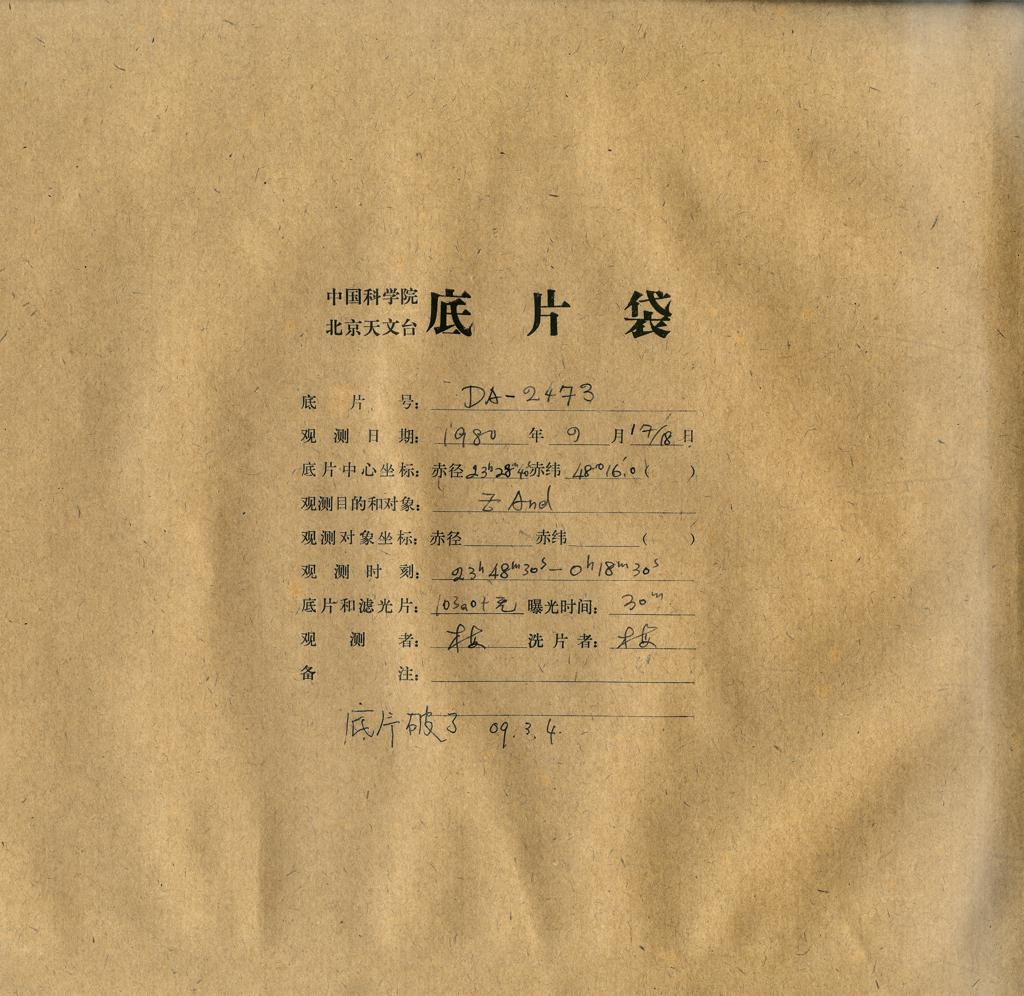 中国科学院
北京天文台 底片袋
底片号: DA-2473
观测日期: 1980 年 9 月 17/18 日
底片中心坐标: 赤径 23h28m40s 赤纬 48°16.0 ( )
观测目的和对象: Z And
观测对象坐标: 赤径 赤纬 ( )
观测时刻: 23h48m30s - 0h18m30s
底片和滤光片: 103a0+无 曝光时间: 30m
观测者: 洗片者:
备注:
底片破了 09.3.4.